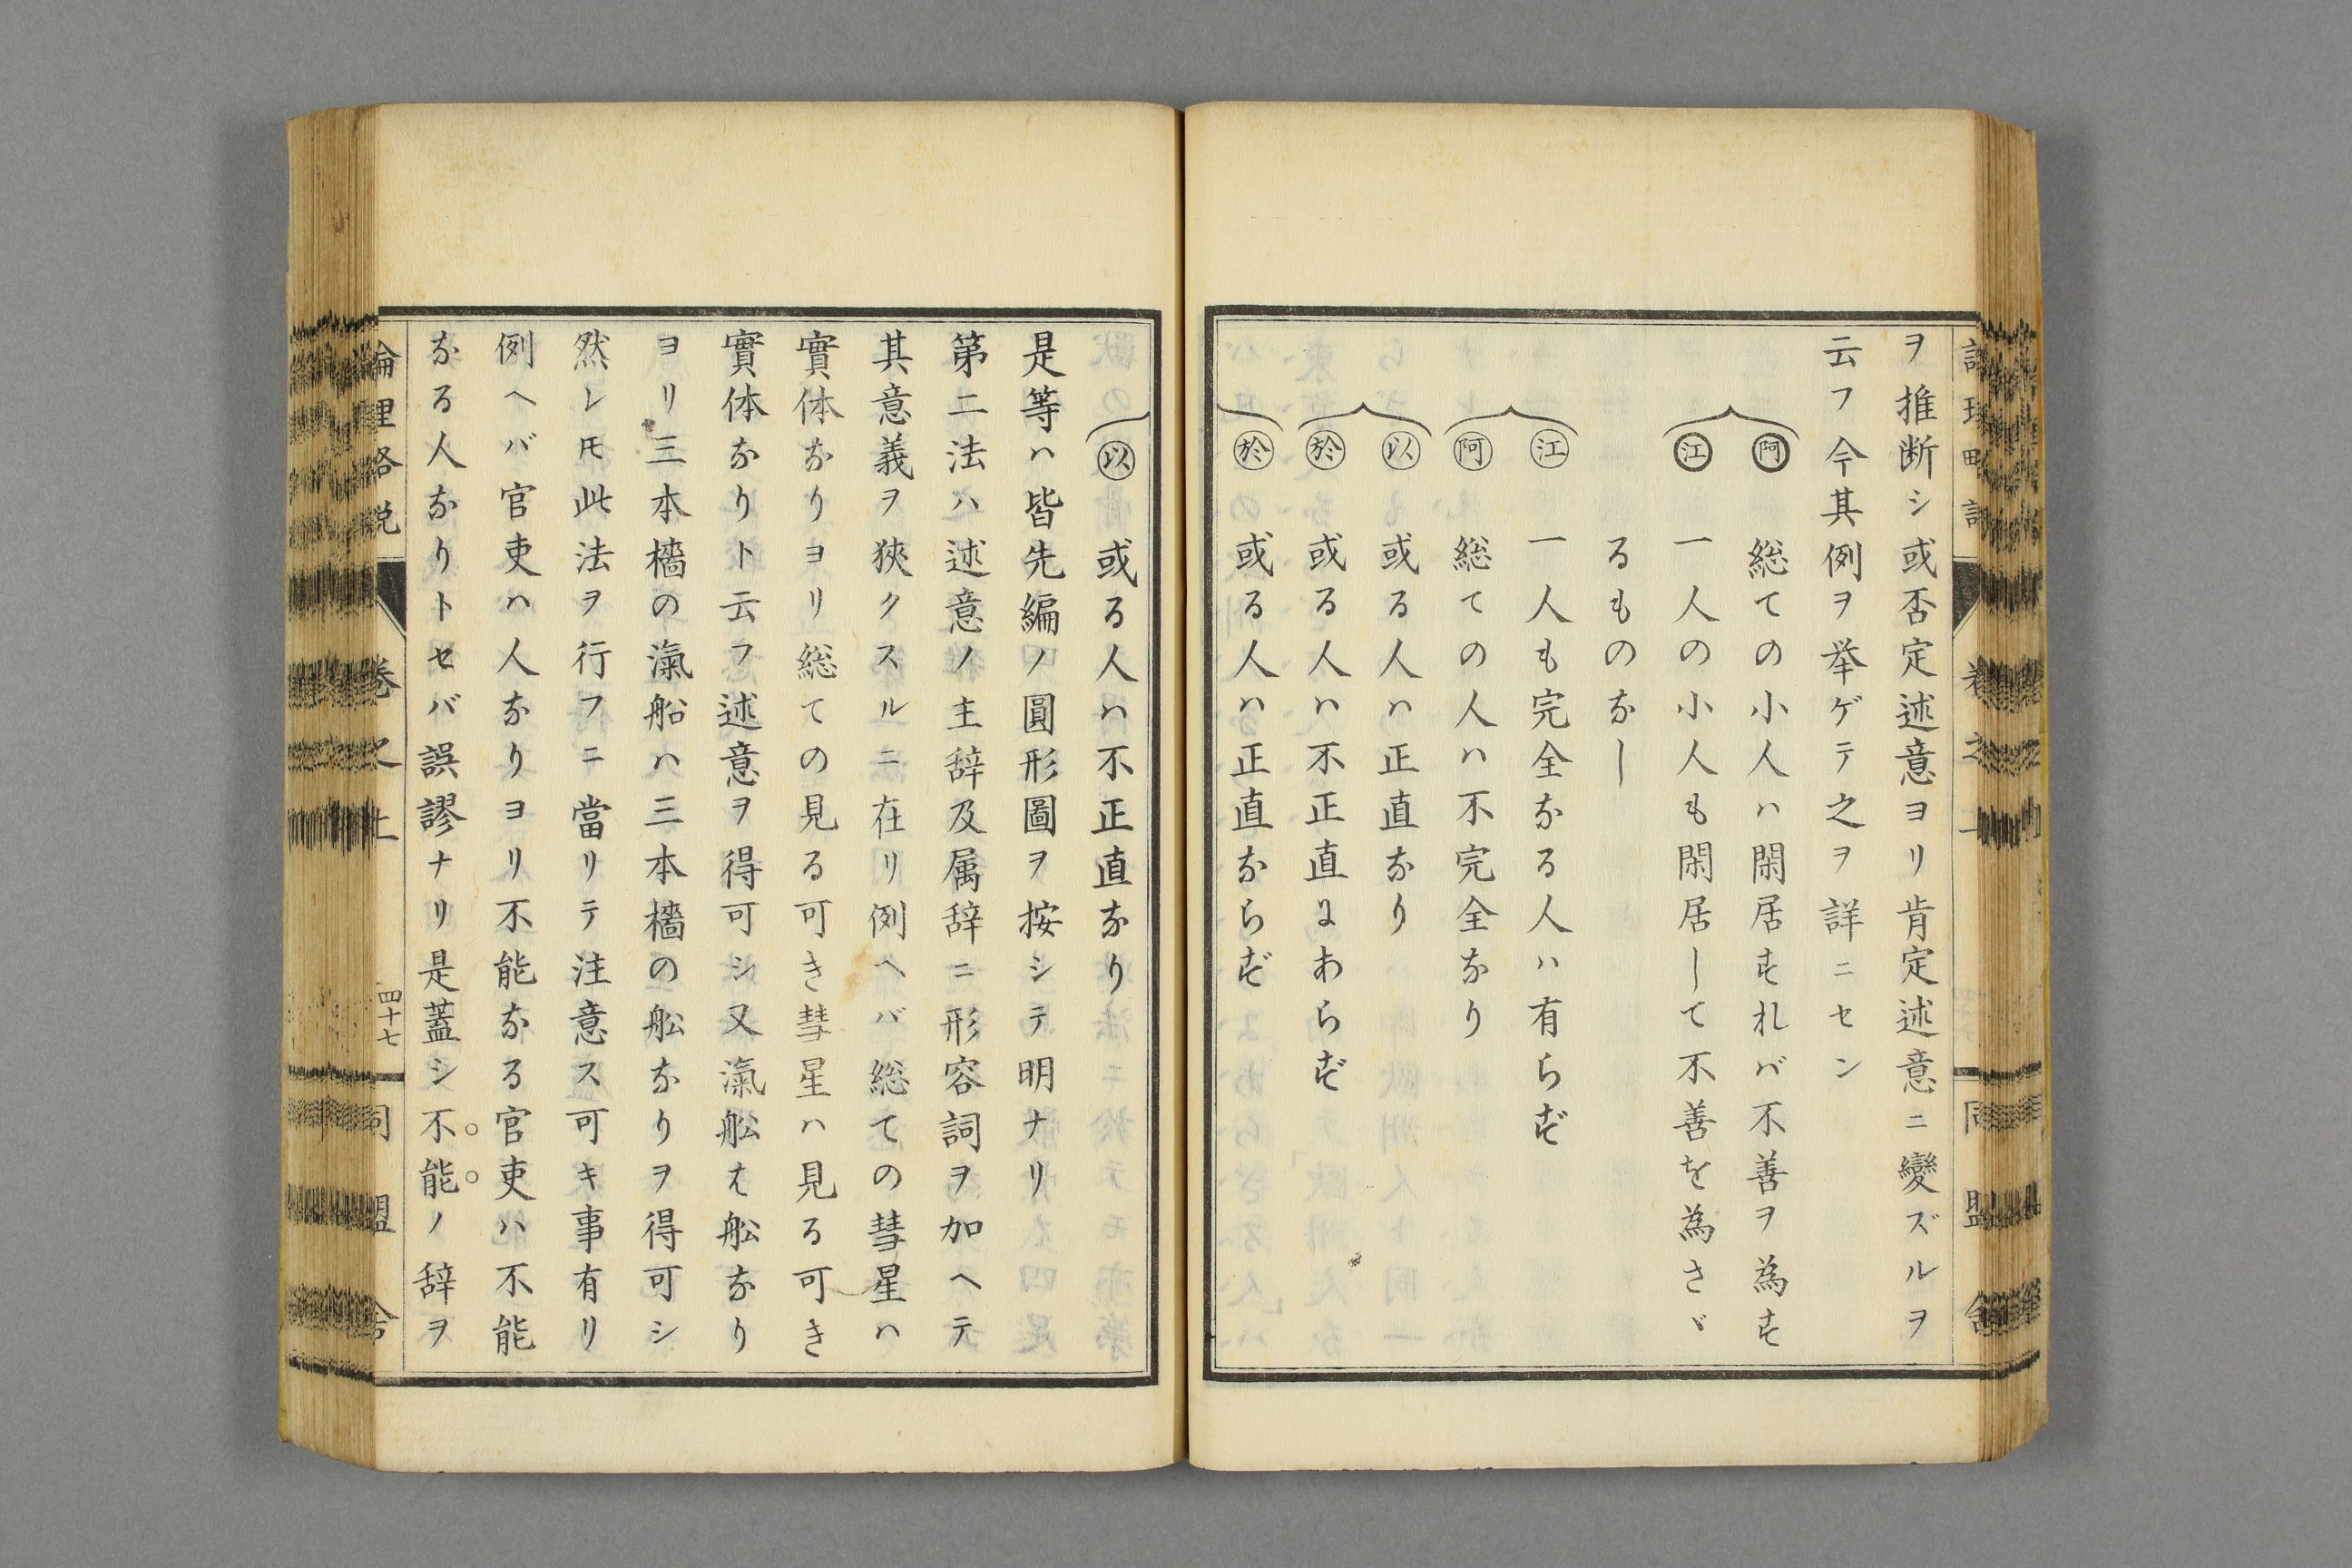 ヲ推断シ或否定述意ヨリ肯定述意ニ變ズルヲ
云フ今其例ヲ挙ゲテ之ヲ詳ニセン
阿 総ての小人ハ閑居すれバ不善ヲ為す
江 一人の小人も閑居して不善を為さゞ
るものなし
江 一人も完全なる人ハ有らず
阿 総ての人ハ不完全なり
以 或る人ハ正直なり
於 或る人ハ不正直にあらず
於 或る人ハ正直ならず
以 或る人ハ不正直なり
是等ハ皆先編ノ圓形圖ヲ按シテ明ナリ
第二法ハ述意ノ主辞及属辞ニ形容詞ヲ加ヘテ
其意義ヲ狹クスルニ在リ例ヘバ総ての彗星ハ
實体なりヨリ総ての見る可き彗星ハ見る可き
實体なりト云フ述意ヲ得可シ又滊舩は舩なり
ヨリ三本檣の滊船ハ三本檣の舩なりヲ得可シ
然レ𪜈此法ヲ行フニ當リテ注意ス可キ事有リ
例ヘバ官吏ハ人なりヨリ不能なる官吏ハ不能
なる人なりトセバ誤謬ナリ是蓋シ不能ノ辞ヲ
論理略説 卷之上 四十七 同盟舎